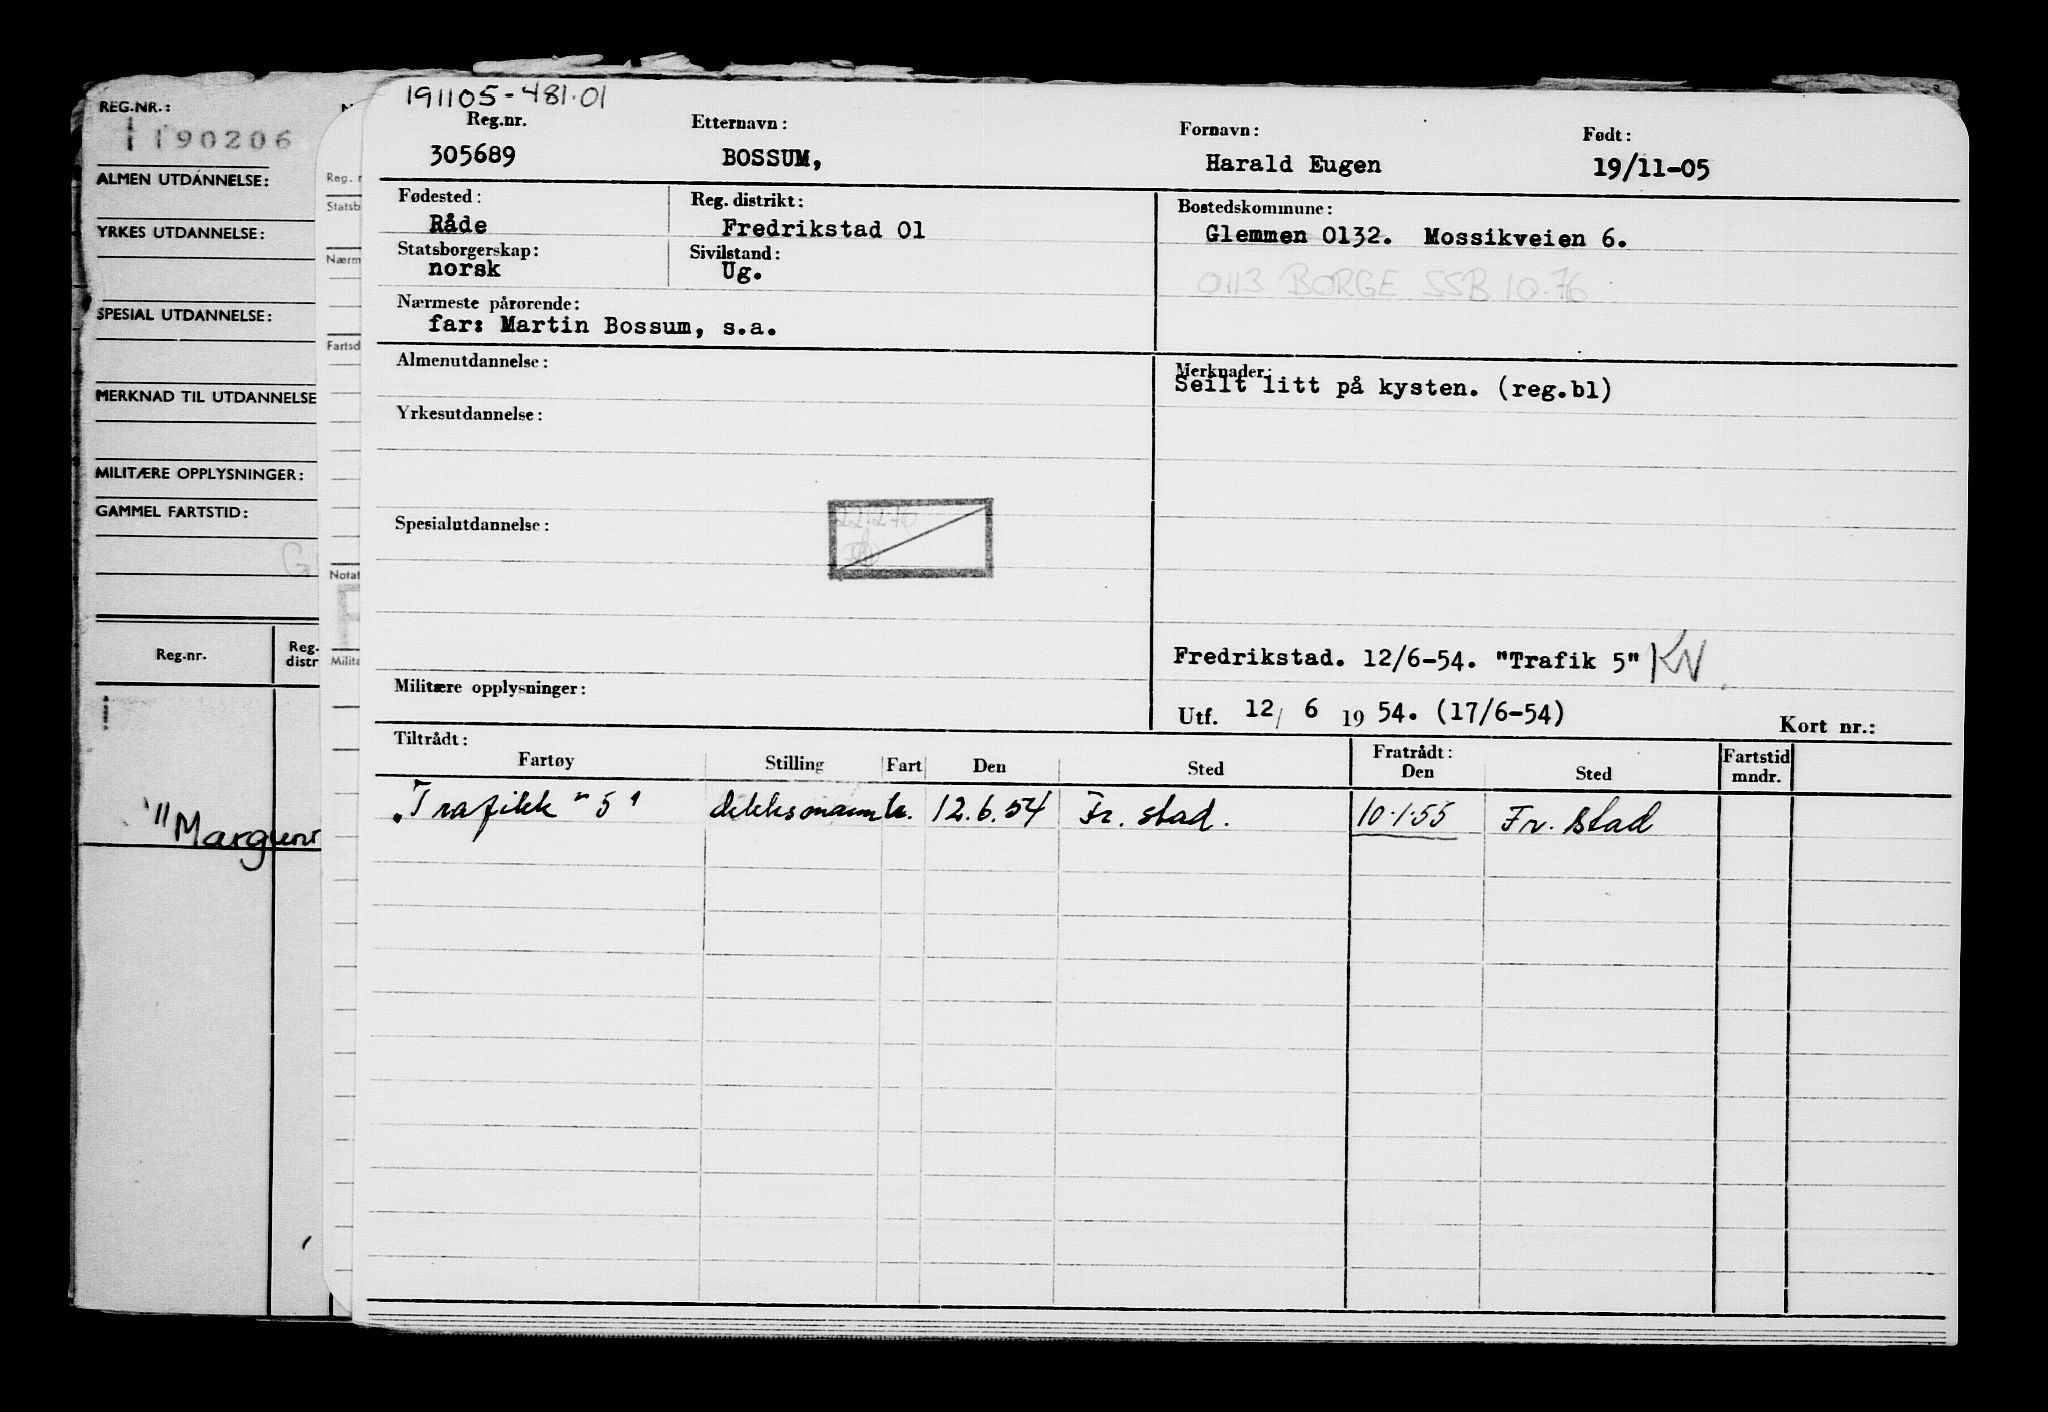 REG.NR.:
190206
ALMEN UTDANNELSE:
YRKES UTDANNELSE:
SPESIAL UTDANNELSE:
MERKNAD TIL UTDANNELSE
MILITÆRE OPPLYSNINGER:
GAMMEL FARTSTID:
Reg.nr.
Reg.
distr
"Margun
Reg. n
Statsb
Nærm
Fartsd
Notat
Milita
191105-481.01
Reg.nr. Etternavn: Fornavn: Født:
305689 BOSSUM, Harald Eugen 19/11-05
Fødested: Reg. distrikt: Bostedskommune:
Råde Fredrikstad 01 Glemmen 0132. Mossikveien 6.
Statsborgerskap: Sivilstand:
norsk Ug.
0113 BORGE SSB 10.76
Nærmeste pårørende:
far: Martin Bossum, s.a.
Almenutdannelse: Merknader:
Seilt litt på kysten. (reg.bl)
Yrkesutdannelse:
Spesialutdannelse:
Fredrikstad. 12/6-54. "Trafik 5" KV
Militære opplysninger:
Utf. 12/ 6 19 54. (17/6-54) Kort nr.:
Tiltrådt: Fratrådt:
Fartøy Stilling Fart Den Sted Den Sted Fartstid mndr.
"Trafikk "5" dekksmann k. 12.6.54 Fr. stad. 10.1.55 Fr. stad